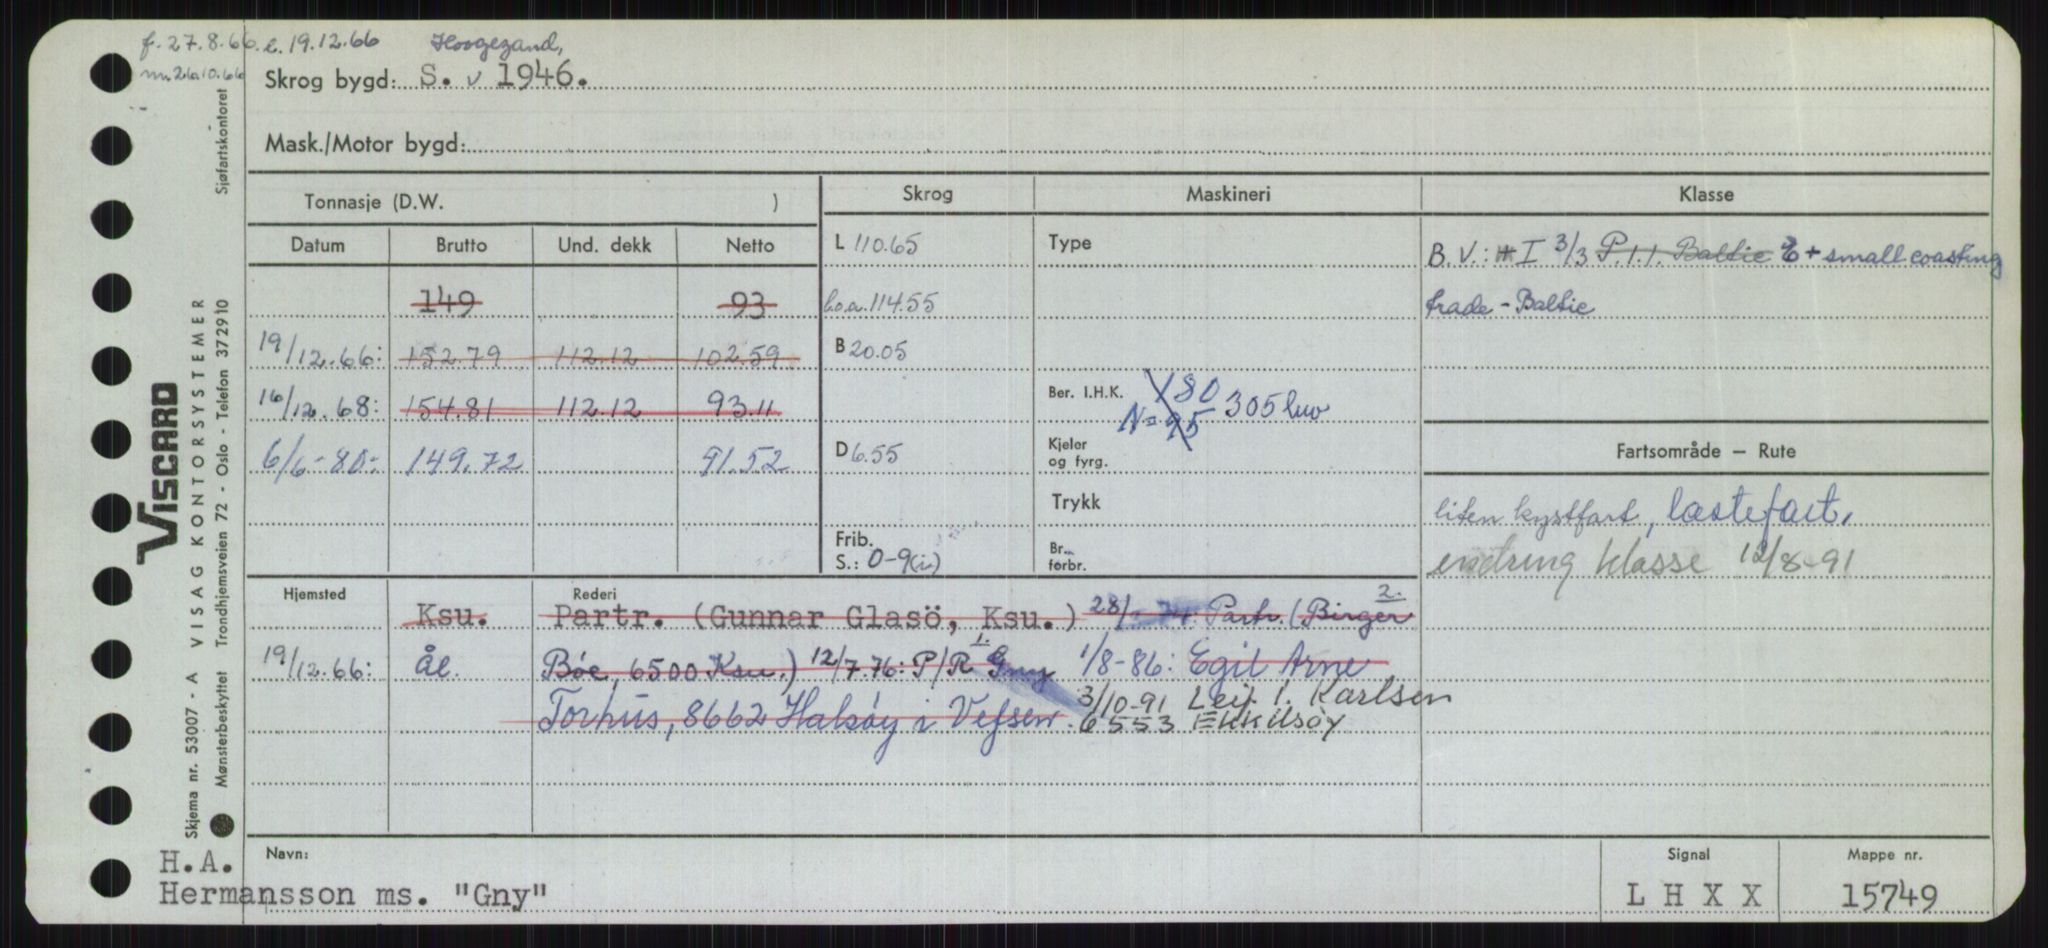 f. 27.8.66. l. 19.12.66
Hoogezand,
Skrog bygd: S. v 1946.
Mask./Motor bygd:
Sjøfartskontoret
Tonnasje (D.W. )
Skrog
Maskineri
Klasse
Datum Brutto Und. dekk Netto
L 110.65
Type
B.V.: I 3/3 P.I.I. Baltic + small coasting
149 93
l.o.a. 114.55
trade - Baltic
19/12.66: 152.79 112.12 102.59
B 20.05
16/12.68: 154.81 112.12 93.11
Ber. I.H.K. 180
N = 95 305
6/6-80: 149.72 91.52
D 6.55
Kjeler og fyrg.
Fartsområde – Rute
Trykk
liten kystfart, lastefart,
Frib.
S.: 0-9(i)
Br. forbr.
endring klasse 12/8-91
Hjemsted
Rederi
Ksu. Partr. (Gunnar Glasö, Ksu.) 28/ Partr. (Birger 2.
19/12.66: Ål. Böe, 6500 Ksu.) 12/7.76: P/R Gny 1. 1/8-86: Egil Arne
Torhus, 8662 Halsøy i Vefsen. 3/10-91 Leif I. Karlsen
6553
Navn:
H.A.
Hermansson ms. "Gny"
Signal
L H X X
Mappe nr.
15749
VISCARD
VISAG KONTORSYSTEMER
Skjema nr. 53007 - A
Mønsterbeskyttet Trondhjemsveien 72 - Oslo - Telefon 372910